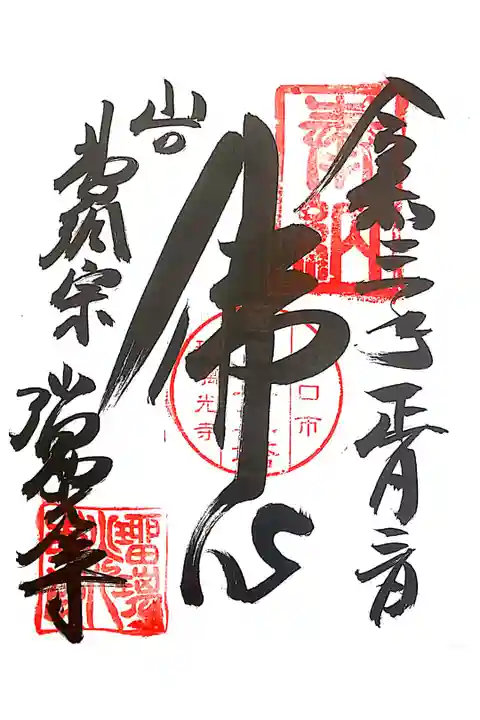 奉納
令和三年正月二日
佛心
山口市
瑠璃光寺
山口
曹洞宗
瑠璃光寺